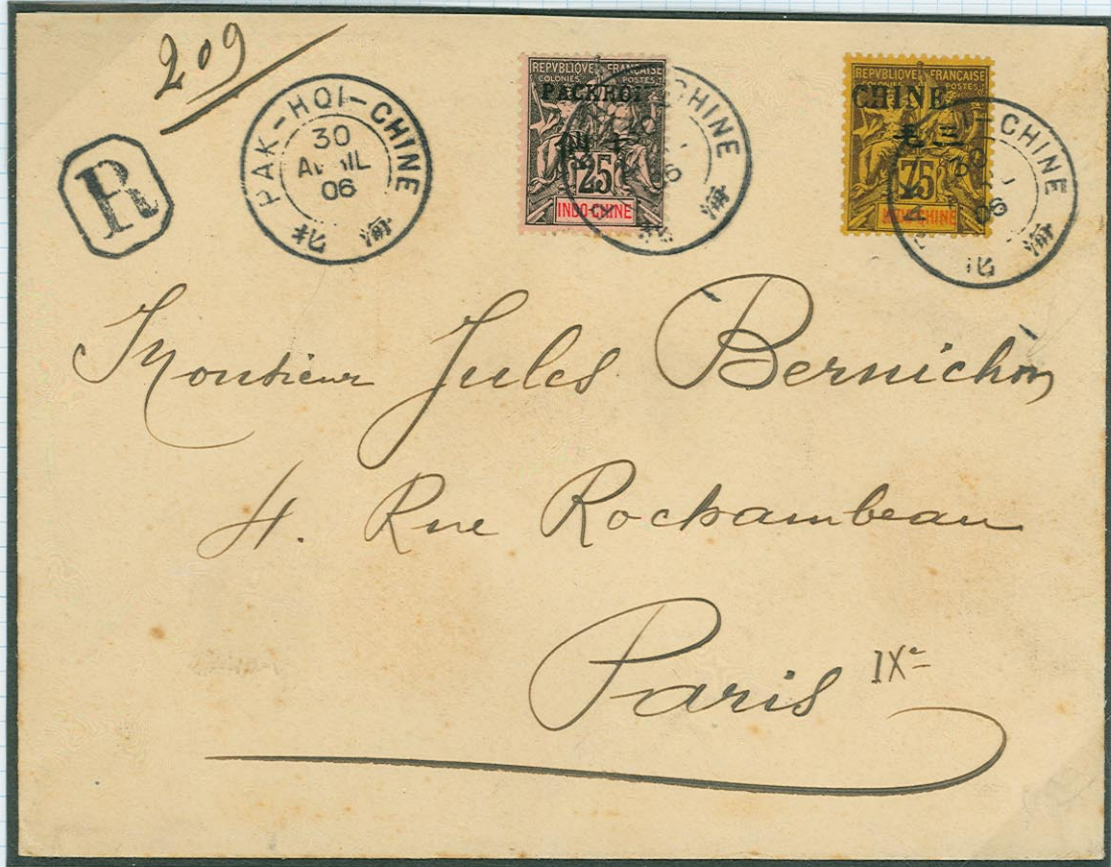 209
R
PAK-HOI-CHINE
30
AVRIL
06
北 海
REPVBLIQVE FRANÇAISE
COLONIES POSTES
PACKHOI
25
INDO-CHINE
CHINE
06
海
REPVBLIQVE FRANÇAISE
COLONIES POSTES
CHINE
毛三
75
INDO-CHINE
CHINE
30
06
北 海
Monsieur Jules Bernichon
4. Rue Rochambeau
Paris IXe